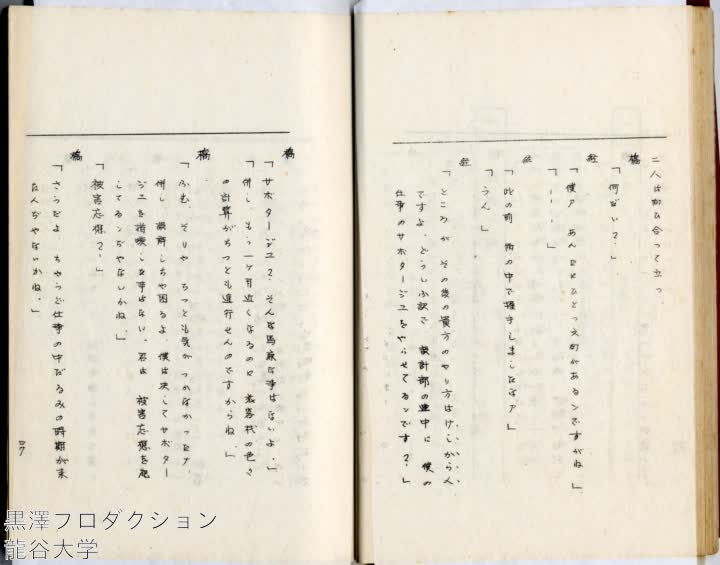 二人は向ひ合って立つ。
橋
「何だい？」
「僕ァ あんたにひとつ文句があるンですがね」
「……」
「此の前 雨の中で握手しましたなァ」
「うん」
「ところが その後の貴方のやり方はけしからん
ですよ、どうしふ訳で 設計部の連中に 僕の
仕事のサボタージユをやらせてるンです？」
橋
「サボタージユ？ そんな馬鹿な事はないよ」
「併し、もう一ケ月近くなるのに
の計算がちつとも進行せんのですからね」
橋
「ふむ、そりや ちつとも気がつかなかつたナ
併し 誤解しちや困るよ 僕は決してサボター
ジユを指嗾した事はない、君は 被害妄想を起
してるンぢやないかね」
「被害妄想？」
橋
「さうだよ、ちやうど仕事の中だるみの時期が来
たんぢやないかね」
47
黒澤プロダクション
龍谷大学